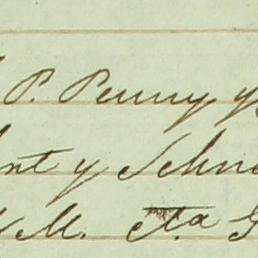 P. Penny y
nt y Schne
M. Fta G